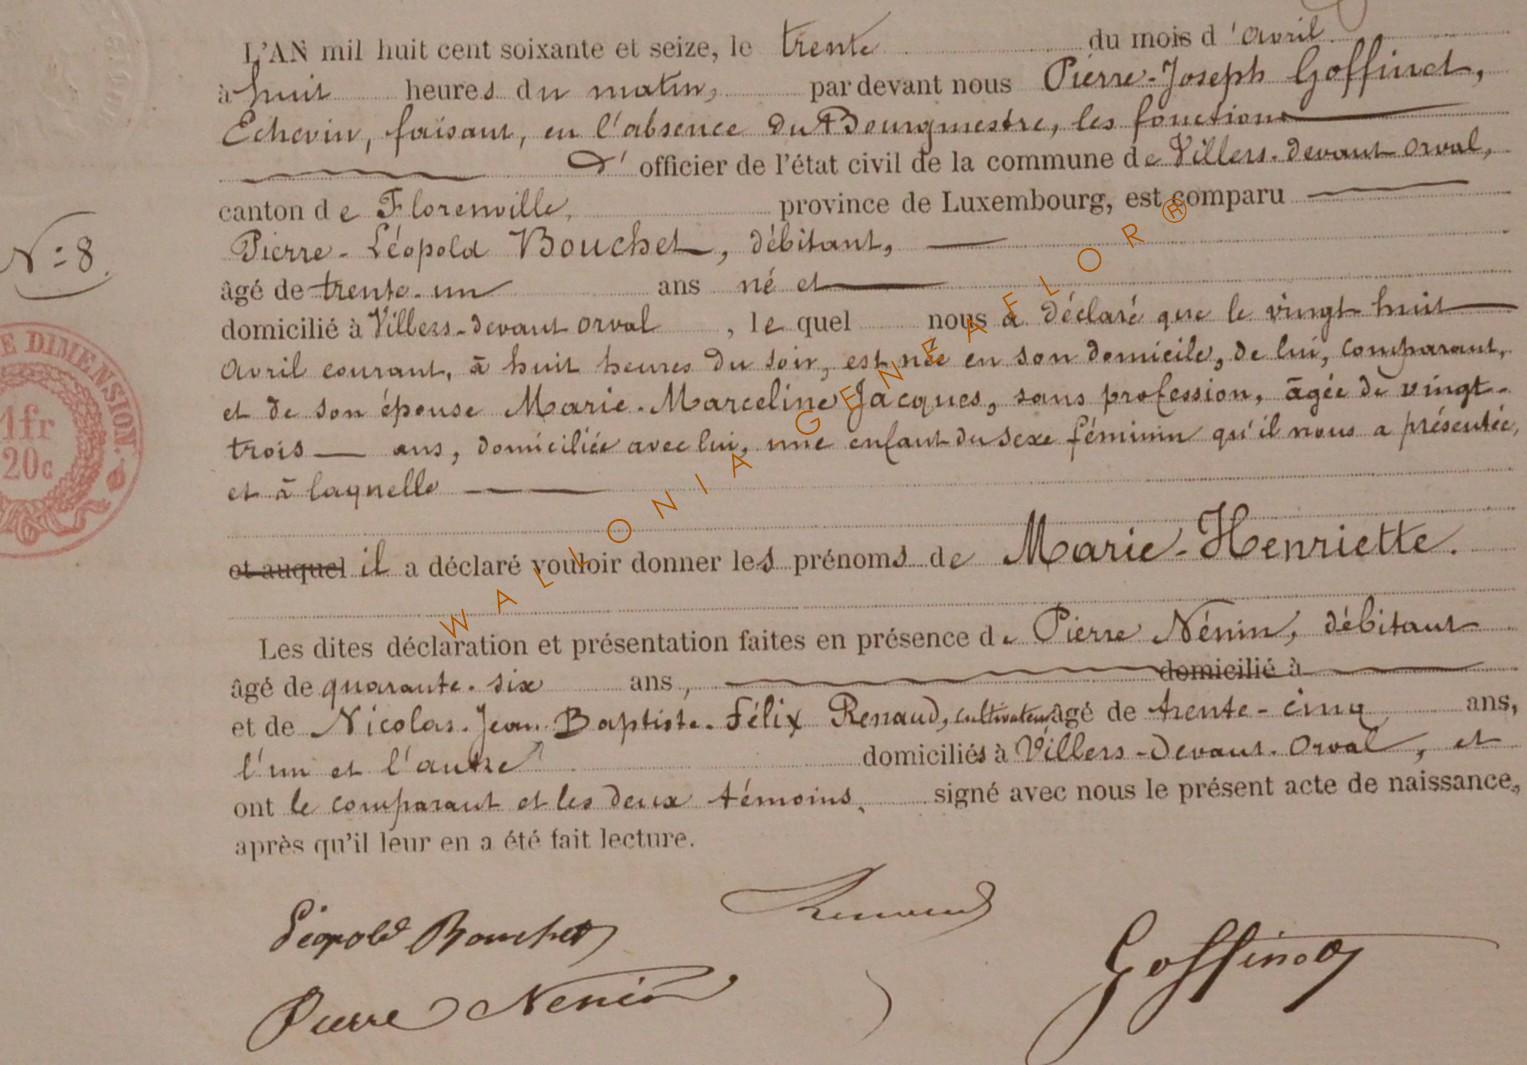 L'AN mil huit cent soixante et seize, le trente du mois d'avril
à huit heures du matin, par devant nous Pierre-Joseph Goffinet,
Echevin, faisant, en l'absence du Bourgmestre, les fonctions
d'officier de l'état civil de la commune de Villers-devant-Orval,
canton de Florenville, province de Luxembourg, est comparu
Pierre-Léopold Bouchet, débitant,
N° 8.
âgé de trente-un ans né et
domicilié à Villers-devant-Orval, lequel nous a déclaré que le vingt-huit
avril courant, à huit heures du soir, est née en son domicile, de lui, comparant,
et de son épouse Marie-Marceline Jacques, sans profession, âgée de vingt-
trois ans, domiciliée avec lui, une enfant du sexe féminin qu'il nous a présentée,
et à laquelle
et auquel il a déclaré vouloir donner les prénoms de Marie-Henriette.
Les dites déclaration et présentation faites en présence de Pierre Nénin, débitant
âgé de quarante-six ans, domicilié à
et de Nicolas-Jean-Baptiste-Félix Renaud, cultivateur âgé de trente-cinq ans,
l'un et l'autre domiciliés à Villers-devant-Orval, et
ont le comparant et les deux témoins, signé avec nous le présent acte de naissance,
après qu'il leur en a été fait lecture.
Léopold Bouchet
Renaud
Goffinet
Pierre Nenin
E DIMENSION.
1 fr
20c
WALLONIA GENEAFLOR ®